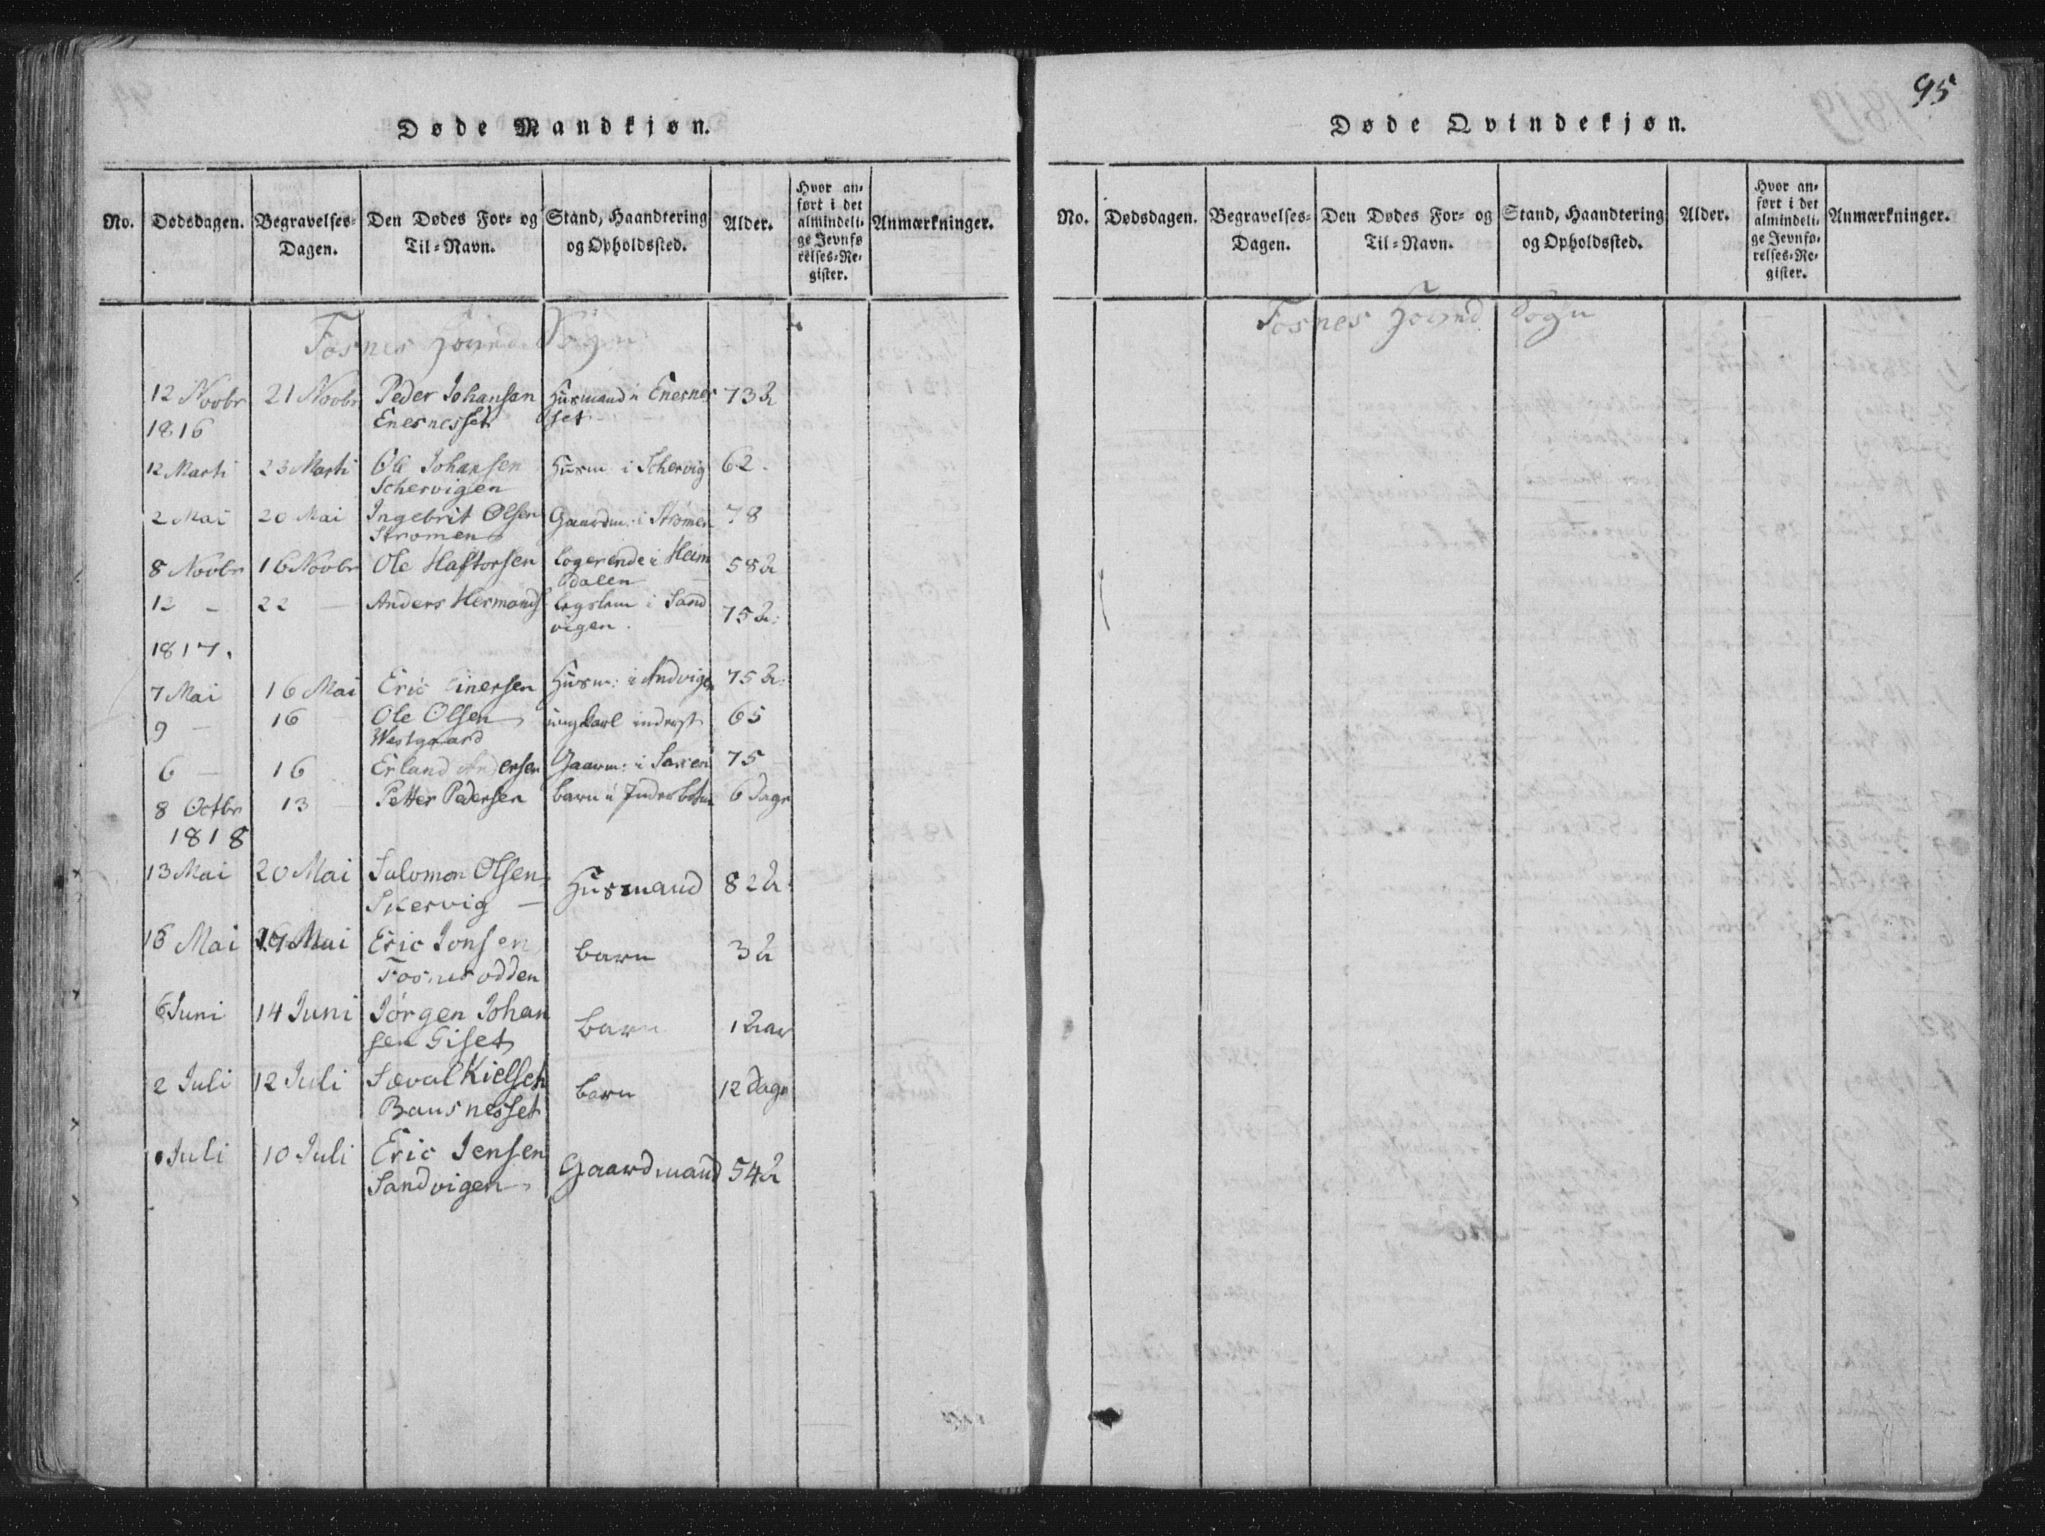 Døde Mandkjøn.
No. Dødsdagen. Begravelses-Dagen. Den Dødes For- og Til-Navn. Stand, Haandtering og Opholdssted. Alder. Hvor anført i det almindelige Jevnførelses-Register. Anmærkninger.
Fosnes Hovind Sogn
12 Novbr 21 Novbr Peder Johansen Husmand i Enesnes 73 Aar
1816 Enesnesset set
12 Marti 23 Marti Ole Johansen Husm i Schervig 62.
Schervigen
2 Mai 20 Mai Ingebrit Olsen Gaardm: i Strømen 78
Strømen
8 Novbr 16 Novbr Ole Haftorsen logerende i Heim 58 Aar
dalen
12 - 22 - Anders Hermands i Sand 75 Aar
vigen.
1817.
7 Mai 16 Mai Eric Einersen Husm: i Andvigen 75 Aar
9 - 16 Ole Olsen inderst 65
Westgaard
6 - 16 Erland Andersen Gaarm: i 75
8 Octbr 13 - Petter Pedersen barn i 6 Dage
1818
13 Mai 20 Mai Salomon Olsen Husmand 82 Aar
Skervig -
16 Mai Mai Eric Jonsen barn 3 Aar
Fosnesodden
6 Juni 14 Juni Jørgen Johan barn 1 Aar
sen Giset
2 Juli 12 Juli Sæval Kielsen barn 12 Dage
Bausnesset
Juli 10 Juli Eric Jensen Gaardmand 54 Aar
Sandvigen
95
Døde Qvindekjøn.
No. Dødsdagen. Begravelses-Dagen. Den Dødes For- og Til-Navn. Stand, Haandtering og Opholdssted. Alder. Hvor anført i det almindelige Jevnførelses-Register. Anmærkninger.
Fosnes Hovind Sogn